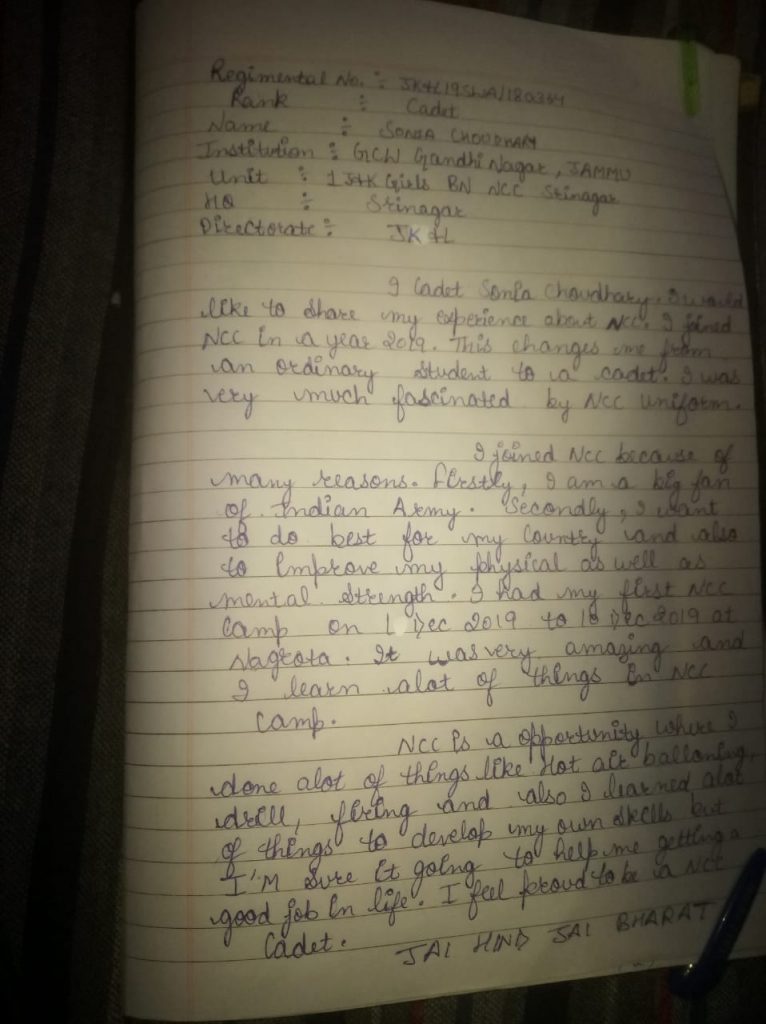 Regimental No. :- JK&L19SWA/180364
Rank :- Cadet
Name :- SONIA CHOUDHARY
Institution :- GCW Gandhi Nagar, JAMMU
Unit :- 1 J&K Girls BN NCC Srinagar
HQ :- Srinagar
Directorate :- JK&L
I Cadet Sonia Choudhary. I would
like to share my experience about NCC. I joined
NCC in a year 2019. This changes me from
an ordinary student to a cadet. I was
very much fascinated by NCC uniform.
I joined NCC because of
many reasons. Firstly, I am a big fan
of Indian Army. Secondly, I want
to do best for my Country and also
to Improve my physical as well as
mental strength. I had my first NCC
Camp on 1 Dec 2019 to 10 Dec 2019 at
Nagrota. It was very amazing and
I learn alot of things in NCC
Camp.
NCC is a opportunity where I
done alot of things like Hot air balloning,
drill, firing and also I learned alot
of things to develop my own skills but
I'M sure it going to help me getting a
good job in life. I feel proud to be a NCC
Cadet.
JAI HIND JAI BHARAT